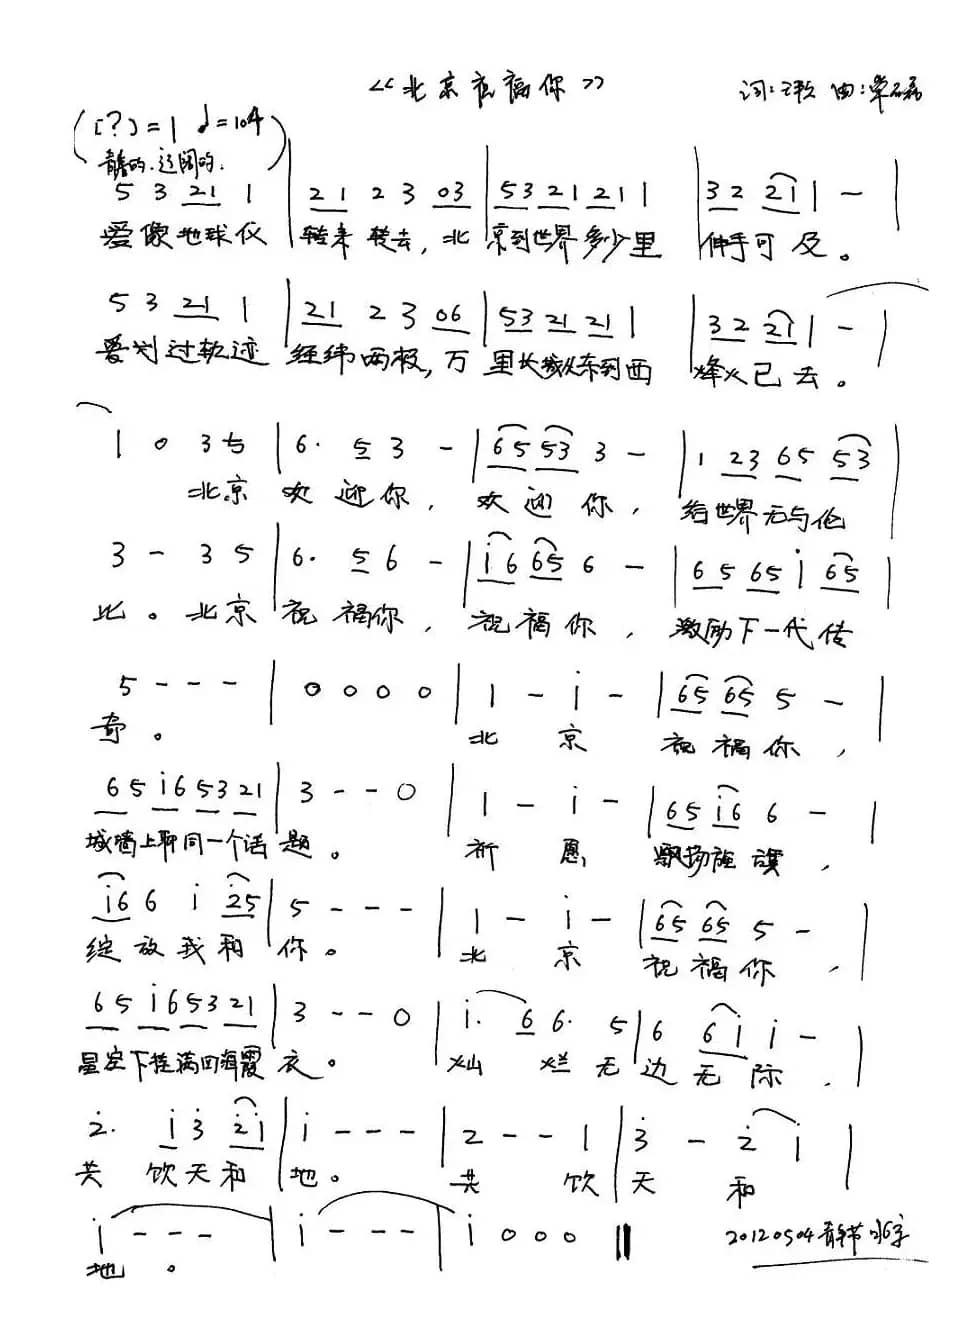 《北京祝福你》
词: 曲:
([?]=1 ♩=104)
5 3 21 1 | 21 2 3 03 | 53 21 21 1 | 32 2i 1 - |
爱像地球仪 转来转去,北京到世界多少里 伸手可及。
5 3 21 1 | 21 2 3 06 | 53 21 21 1 | 32 21 1 - |
爱划过轨迹 经纬两极,万里长城从东到西 烽火已去。
1 0 3 5 | 6· 5 3 - | 65 53 3 - | 1 23 65 53 |
北京欢迎你,欢迎你,给世界无与伦
3 - 3 5 | 6· 5 6 - | i6 65 6 - | 65 65 i 65 |
比。北京祝福你,祝福你,激励下一代传
5 - - - | 0 0 0 0 | 1 - i - | 65 65 5 - |
奇。 北京 祝福你,
65 i6 53 21 | 3 - - 0 | 1 - i - | 65 i6 6 - |
城墙上聊同一个话题。 祈愿 飘扬旌旗,
i6 6 i i25 | 5 - - - | 1 - i - | 65 65 5 - |
绽放我和你。 北京 祝福你,
65 i6 53 21 | 3 - - 0 | i· 6 6· 5 | 6 61 i - |
星空下挂满四海霞衣。 灿烂无边无际,
2̇· i3̇ 2̇i | i - - - | 2 - - 1 | 3̇ - 2̇ i |
共饮天和地。 共饮天和
i - - - | i - - - | i 0 0 0 ‖
地。
20120504青年节